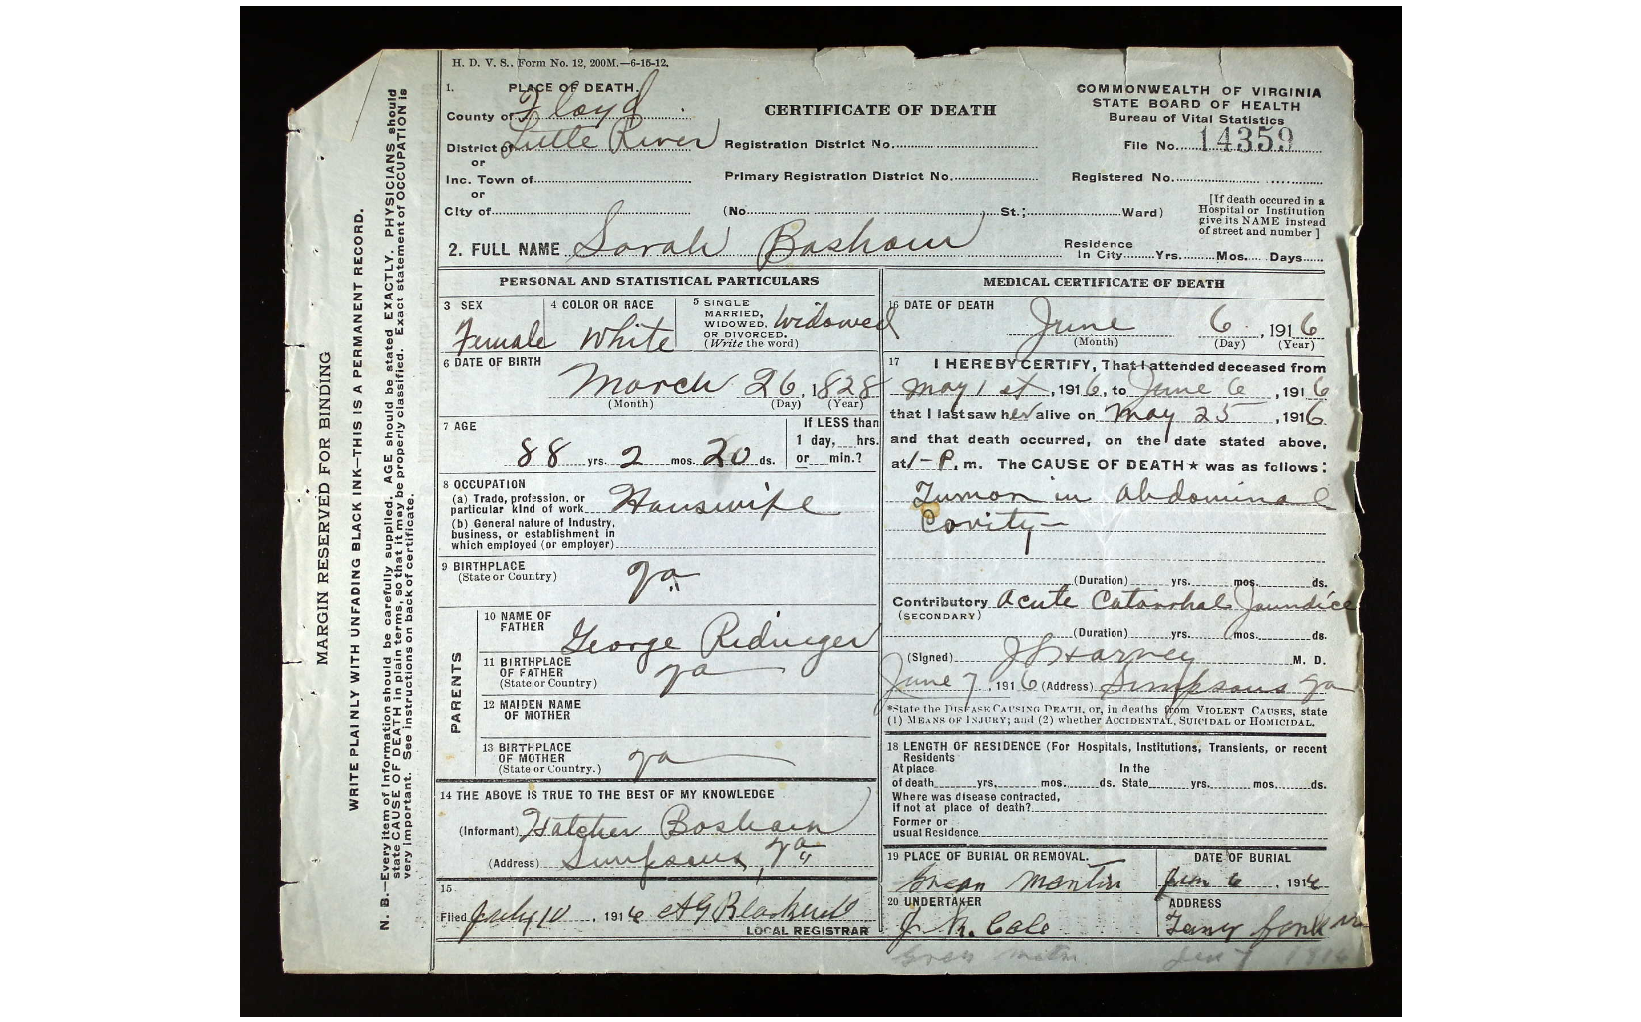 H. D. V. S.. Form No. 12, 200M.—6-15-12.
1. PLACE OF DEATH.
County of Floyd
District of Little River
or
Inc. Town of
or
City of
CERTIFICATE OF DEATH
Registration District No.
Primary Registration District No.
(No. St.; Ward)
COMMONWEALTH OF VIRGINIA
STATE BOARD OF HEALTH
Bureau of Vital Statistics
File No. 14359
Registered No.
[If death occured in a
Hospital or Institution
give its NAME instead
of street and number]
2. FULL NAME Sarah Basham
Residence
In City Yrs. Mos. Days
PERSONAL AND STATISTICAL PARTICULARS
3 SEX
Female
4 COLOR OR RACE
White
5 SINGLE
MARRIED,
WIDOWED,
OR DIVORCED.
(Write the word)
Widowed
6 DATE OF BIRTH
March 26, 1828
(Month) (Day) (Year)
7 AGE
88 yrs. 2 mos. 20 ds.
If LESS than
1 day, hrs.
or min.?
8 OCCUPATION
(a) Trade, profession, or
particular kind of work Houswife
(b) General nature of Industry,
business, or establishment in
which employed (or employer)
9 BIRTHPLACE
(State or Country)
Va
PARENTS
10 NAME OF
FATHER
George Ridinger
11 BIRTHPLACE
OF FATHER
(State or Country)
Va
12 MAIDEN NAME
OF MOTHER
13 BIRTHPLACE
OF MOTHER
(State or Country.)
Va
14 THE ABOVE IS TRUE TO THE BEST OF MY KNOWLEDGE
(Informant) Hatcher Basham
(Address) Simpsons, Va
15
Filed July 10, 1916
LOCAL REGISTRAR
MEDICAL CERTIFICATE OF DEATH
16 DATE OF DEATH
June 6, 1916
(Month) (Day) (Year)
17 I HEREBY CERTIFY, That I attended deceased from
May 1st, 1916, to June 6, 1916
that I last saw her alive on May 25, 1916.
and that death occurred, on the date stated above,
at 1-P. m. The CAUSE OF DEATH★ was as follows:
Tumor in Abdominal
Cavity—
(Duration) yrs. mos. ds.
Contributory Acute Catarrhal Jaundice
(SECONDARY)
(Duration) yrs. mos. ds.
(Signed) Harney M. D.
June 7, 1916 (Address) Simpsons Va
*State the DISEASE CAUSING DEATH, or, in deaths from VIOLENT CAUSES, state
(1) MEANS OF INJURY; and (2) whether ACCIDENTAL, SUICIDAL or HOMICIDAL.
18 LENGTH OF RESIDENCE (For Hospitals, Institutions, Transients, or recent
Residents
At place In the
of death yrs. mos. ds. State yrs. mos. ds.
Where was disease contracted,
If not at place of death?
Former or
usual Residence
19 PLACE OF BURIAL OR REMOVAL.
DATE OF BURIAL
Jun 6, 1916
20 UNDERTAKER
ADDRESS
MARGIN RESERVED FOR BINDING
WRITE PLAINLY WITH UNFADING BLACK INK—THIS IS A PERMANENT RECORD.
N. B.—Every item of information should be carefully supplied. AGE should be stated EXACTLY. PHYSICIANS should
state CAUSE OF DEATH in plain terms, so that it may be properly classified. Exact statement of OCCUPATION is
very important. See instructions on back of certificate.